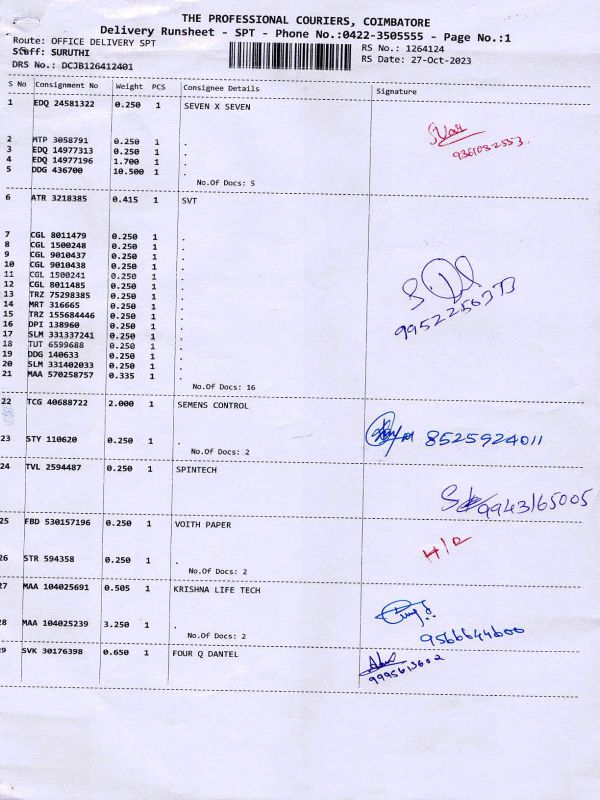 THE PROFESSIONAL COURIERS, COIMBATORE
Delivery Runsheet - SPT - Phone No.:0422-3505555 - Page No.:1
Route: OFFICE DELIVERY SPT RS No.: 1264124
Staff: SURUTHI RS Date: 27-Oct-2023
DRS No.: DCJB126412401
S No Consignment No Weight PCS Consignee Details Signature
1 EDQ 24581322 0.250 1 SEVEN X SEVEN
2 MTP 3058791 0.250 1 .
3 EDQ 14977313 0.250 1 .
4 EDQ 14977196 1.700 1 .
5 DDG 436700 10.500 1 .
No.Of Docs: 5
6 ATR 3218385 0.415 1 SVT
7 CGL 8011479 0.250 1 .
8 CGL 1500248 0.250 1 .
9 CGL 9010437 0.250 1 .
10 CGL 9010438 0.250 1 .
11 CGL 1500241 0.250 1 .
12 CGL 8011485 0.250 1 .
13 TRZ 75298385 0.250 1 .
14 MRT 316665 0.250 1 .
15 TRZ 155684446 0.250 1 .
16 DPI 138960 0.250 1 .
17 SLM 331337241 0.250 1 .
18 TUT 6599688 0.250 1 .
19 DDG 140633 0.250 1 .
20 SLM 331402033 0.250 1 .
21 MAA 570258757 0.335 1 .
No.Of Docs: 16
22 TCG 40688722 2.000 1 SEMENS CONTROL
8525924011
23 STY 110620 0.250 1 .
No.Of Docs: 2
24 TVL 2594487 0.250 1 SPINTECH
9943165005
25 FBD 530157196 0.250 1 VOITH PAPER
H/R
26 STR 594358 0.250 1 .
No.Of Docs: 2
27 MAA 104025691 0.505 1 KRISHNA LIFE TECH
28 MAA 104025239 3.250 1 .
9566644600
No.Of Docs: 2
29 SVK 30176398 0.650 1 FOUR Q DANTEL
9995613602